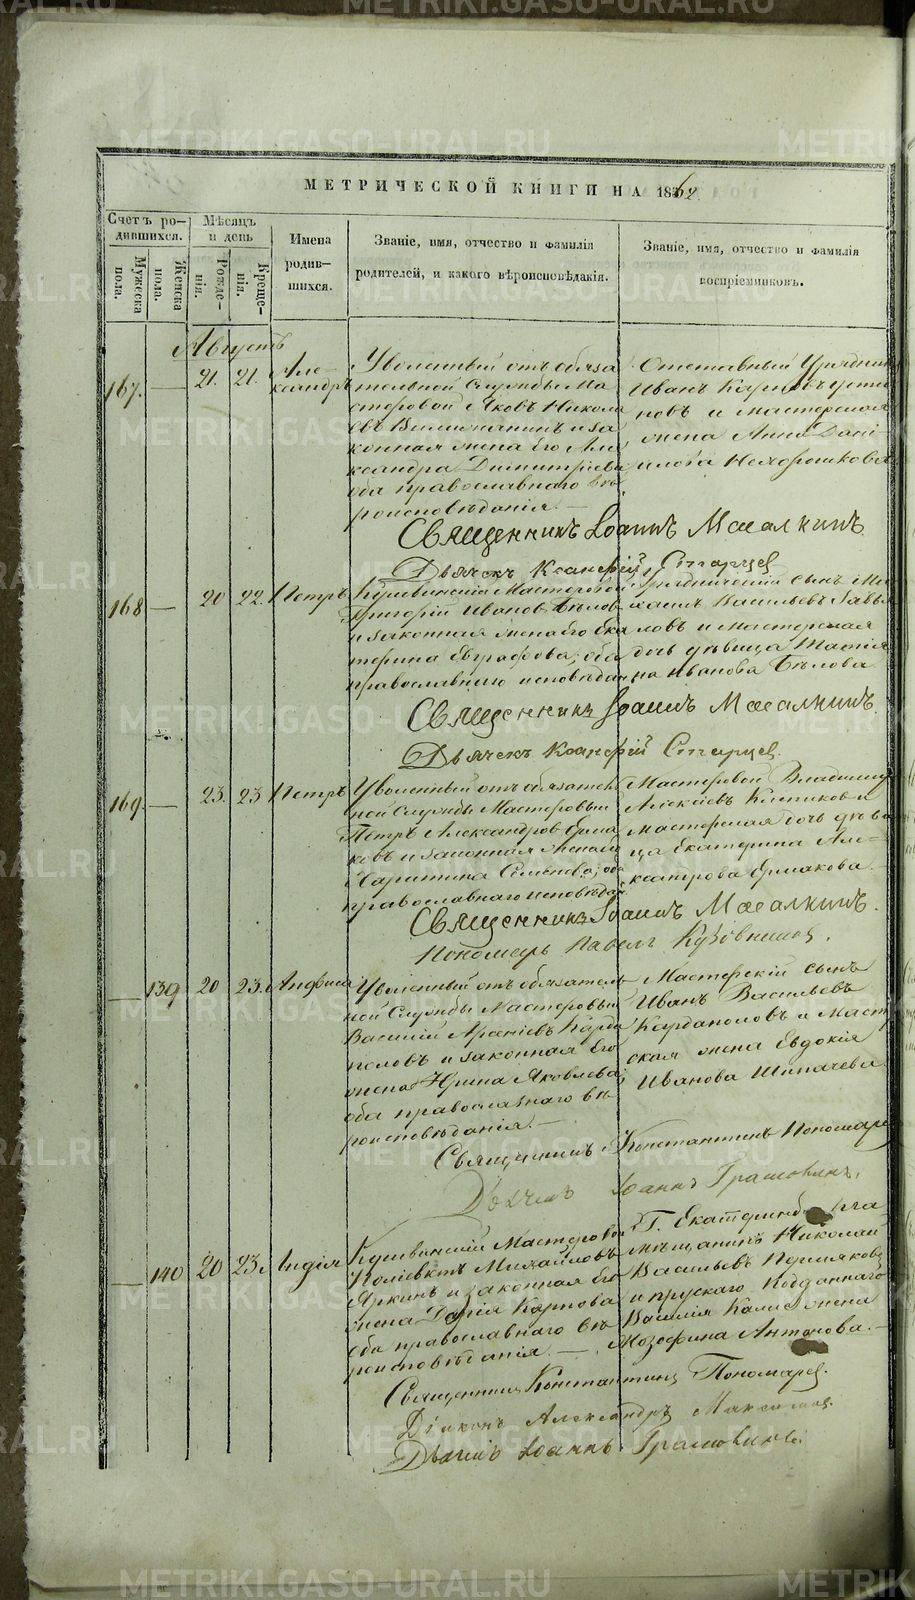 МЕТРИЧЕСКОЙ КНИГИ НА 1862
Счетъ родившихся.
Мѣсяцъ и день
Имена родившихся.
Званіе, имя, отчество и фамилія родителей, и какого вѣроисповѣданія.
Званіе, имя, отчество и фамилія воспріемниковъ.
Мужеска пола.
Женска пола.
Рожденія.
Крещенія.
Августъ
167.
—
21.
21.
Александръ
Уволенный отъ обяза
тельной службы Ма
стеровой Яковъ Никола
евъ и за
конная жена его Але
ксандра Димитріева
оба православнаго вѣ
роисповѣданія. —
Отставный Урядник
Иванъ Карповъ Усти
новъ и мастерская
жена Анна Дані
илова Нехорошкова
Священникъ Іоаннъ Масалкинъ.
Дьячекъ Ксенофій Старцев
168
—
20
22.
Петръ
Мастеровой
Григорій Иванов Бѣлов
и законная жена его Ека
терина Евграфова; оба
православнаго исповѣдан
сынъ Ми
хаилъ Васильевъ Завья
ловъ и Мастерская
дочь дѣвица Таисія
Иванова Бѣлова
Священникъ Іоаннъ Масалкинъ.
Дьячекъ Ксенофій Старцев.
169.
—
23.
23
Петръ
Уволенный отъ обязател
ной службы Мастеровый
Петръ Александров Ерма
ковъ и законная жена его
Харитина Семенова; оба
православнаго исповѣдан.
Мастеровой Владимир
Алексіевъ Костиков и
мастерская дочь дѣви
ца Екатерина Але-
ксандрова Ермакова
Священникъ Іоаннъ Масалкинъ.
Пономарь Павелъ Кузовников.
—
139
20
23.
Анфиса
Уволенный отъ обязатель
ной службы Мастеровый
Василій Арсеніевъ Карда
половъ и законная его
жена Ирина Яковлева
оба православнаго вѣ
роисповѣданія. —
Мастерскій сынъ
Иванъ Васильевъ
Кардаполовъ и Масте
ская жена Евдокія
Иванова Шипачева
Священникъ Константинъ Пономарев
Дьячекъ Іоаннъ Грамолинъ.
—
140
20
23.
Лидія
Кушвинскій Мастеровой
Михайловъ
Яркинъ и законная его
жена Дарія Карпова
оба православнаго вѣ
роисповѣданія. —
Г. Екатеринбурга
мѣщанинъ Николай
Васильевъ Пермяковъ
и прускаго Подданнаго
Василія жена
Антонова. —
Священникъ Константинъ Пономарев.
Діаконъ Александръ Максимов.
Дьячекъ Іоаннъ Грамолинъ.
METRIKI.GASO-URAL.RU